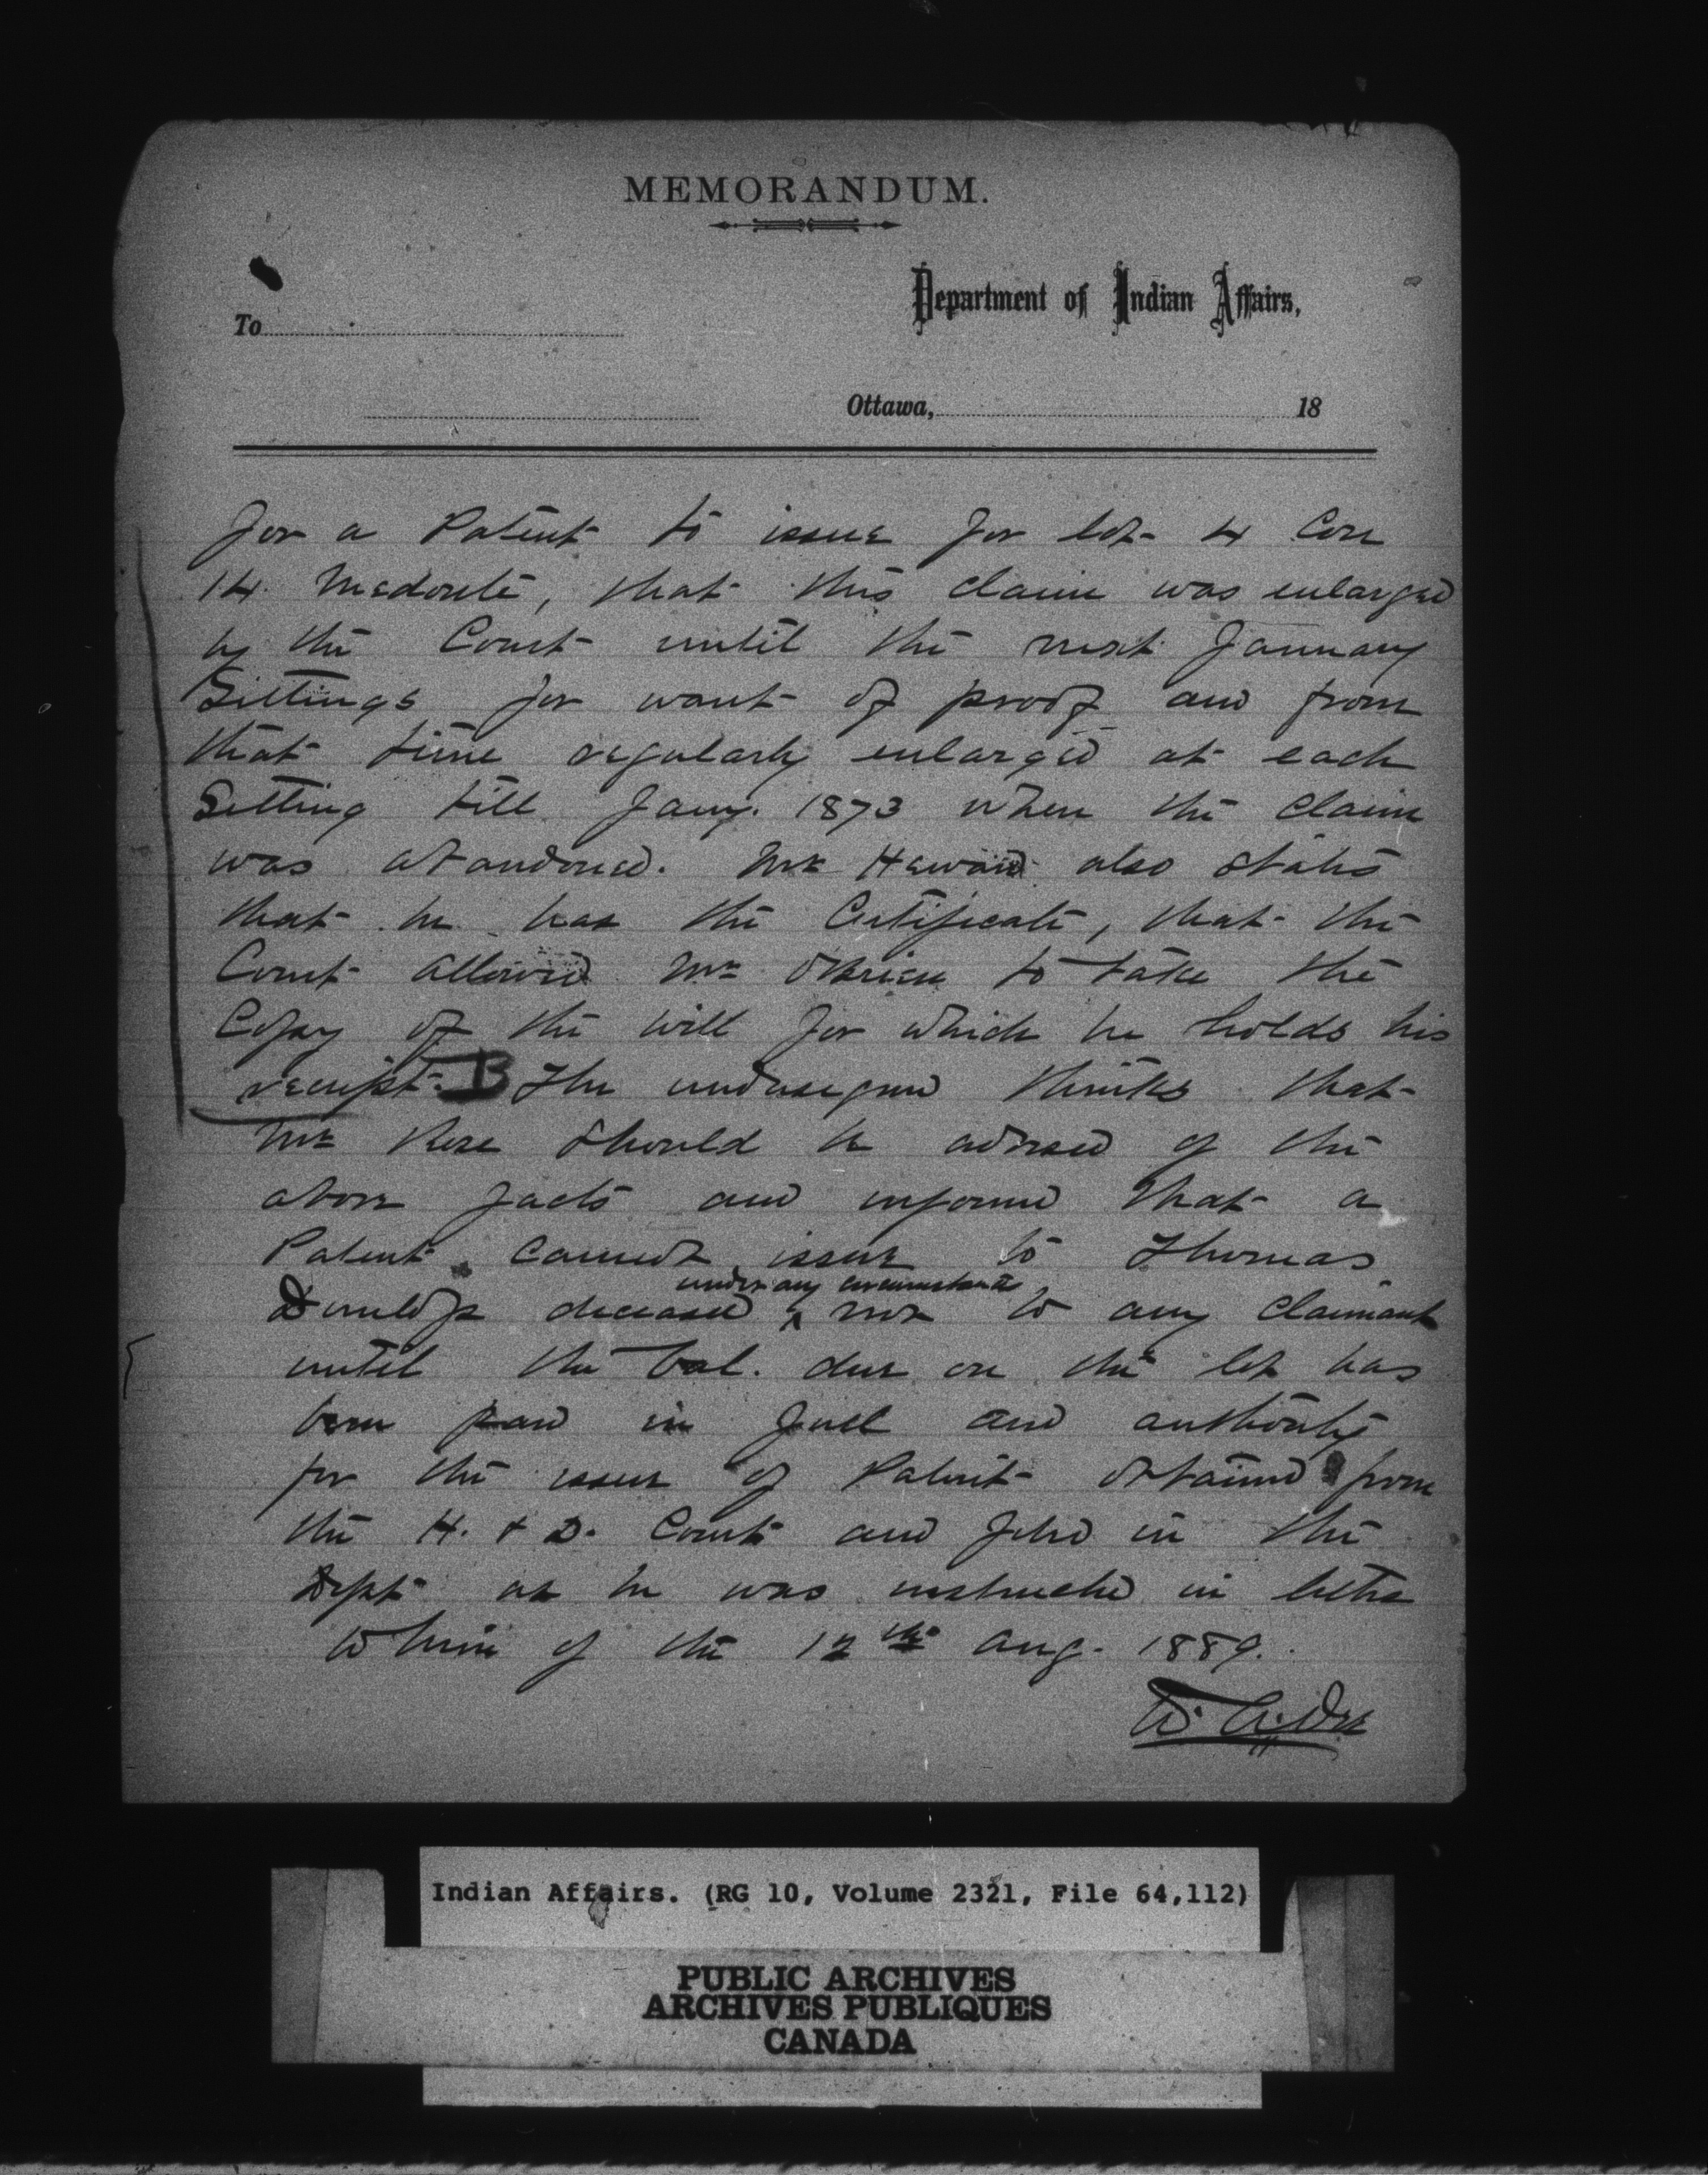 MEMORANDUM.
Department of Indian Affairs,
To
Ottawa, 18
for a Patent to issue for lot 4 Con
14 Medonte, that this claim was enlarged
by the Court until the next January
Sittings for want of proof and from
that time regularly enlarged at each
Sitting till Jany. 1873 when the claim
was abandoned. Mr Heward also states
that he has the Certificate, that the
Court allowed Mr OBrien to take the
Copy of the will for which he holds his
receipt. B The undersigned thinks that
Mr Rose should be advised of the
above facts and informed that a
Patent cannot issue to Thomas
under any circumstances
Dunlop deceased, nor to any Claimant
until the bal. due on the lot has
been paid in full and authority
for the issue of Patent obtained from
the H. & D. Court and filed in the
Dept as he was instructed in letter
to him of the 12th Aug. 1889.
Indian Affairs. (RG 10, Volume 2321, File 64,112)
PUBLIC ARCHIVES
ARCHIVES PUBLIQUES
CANADA